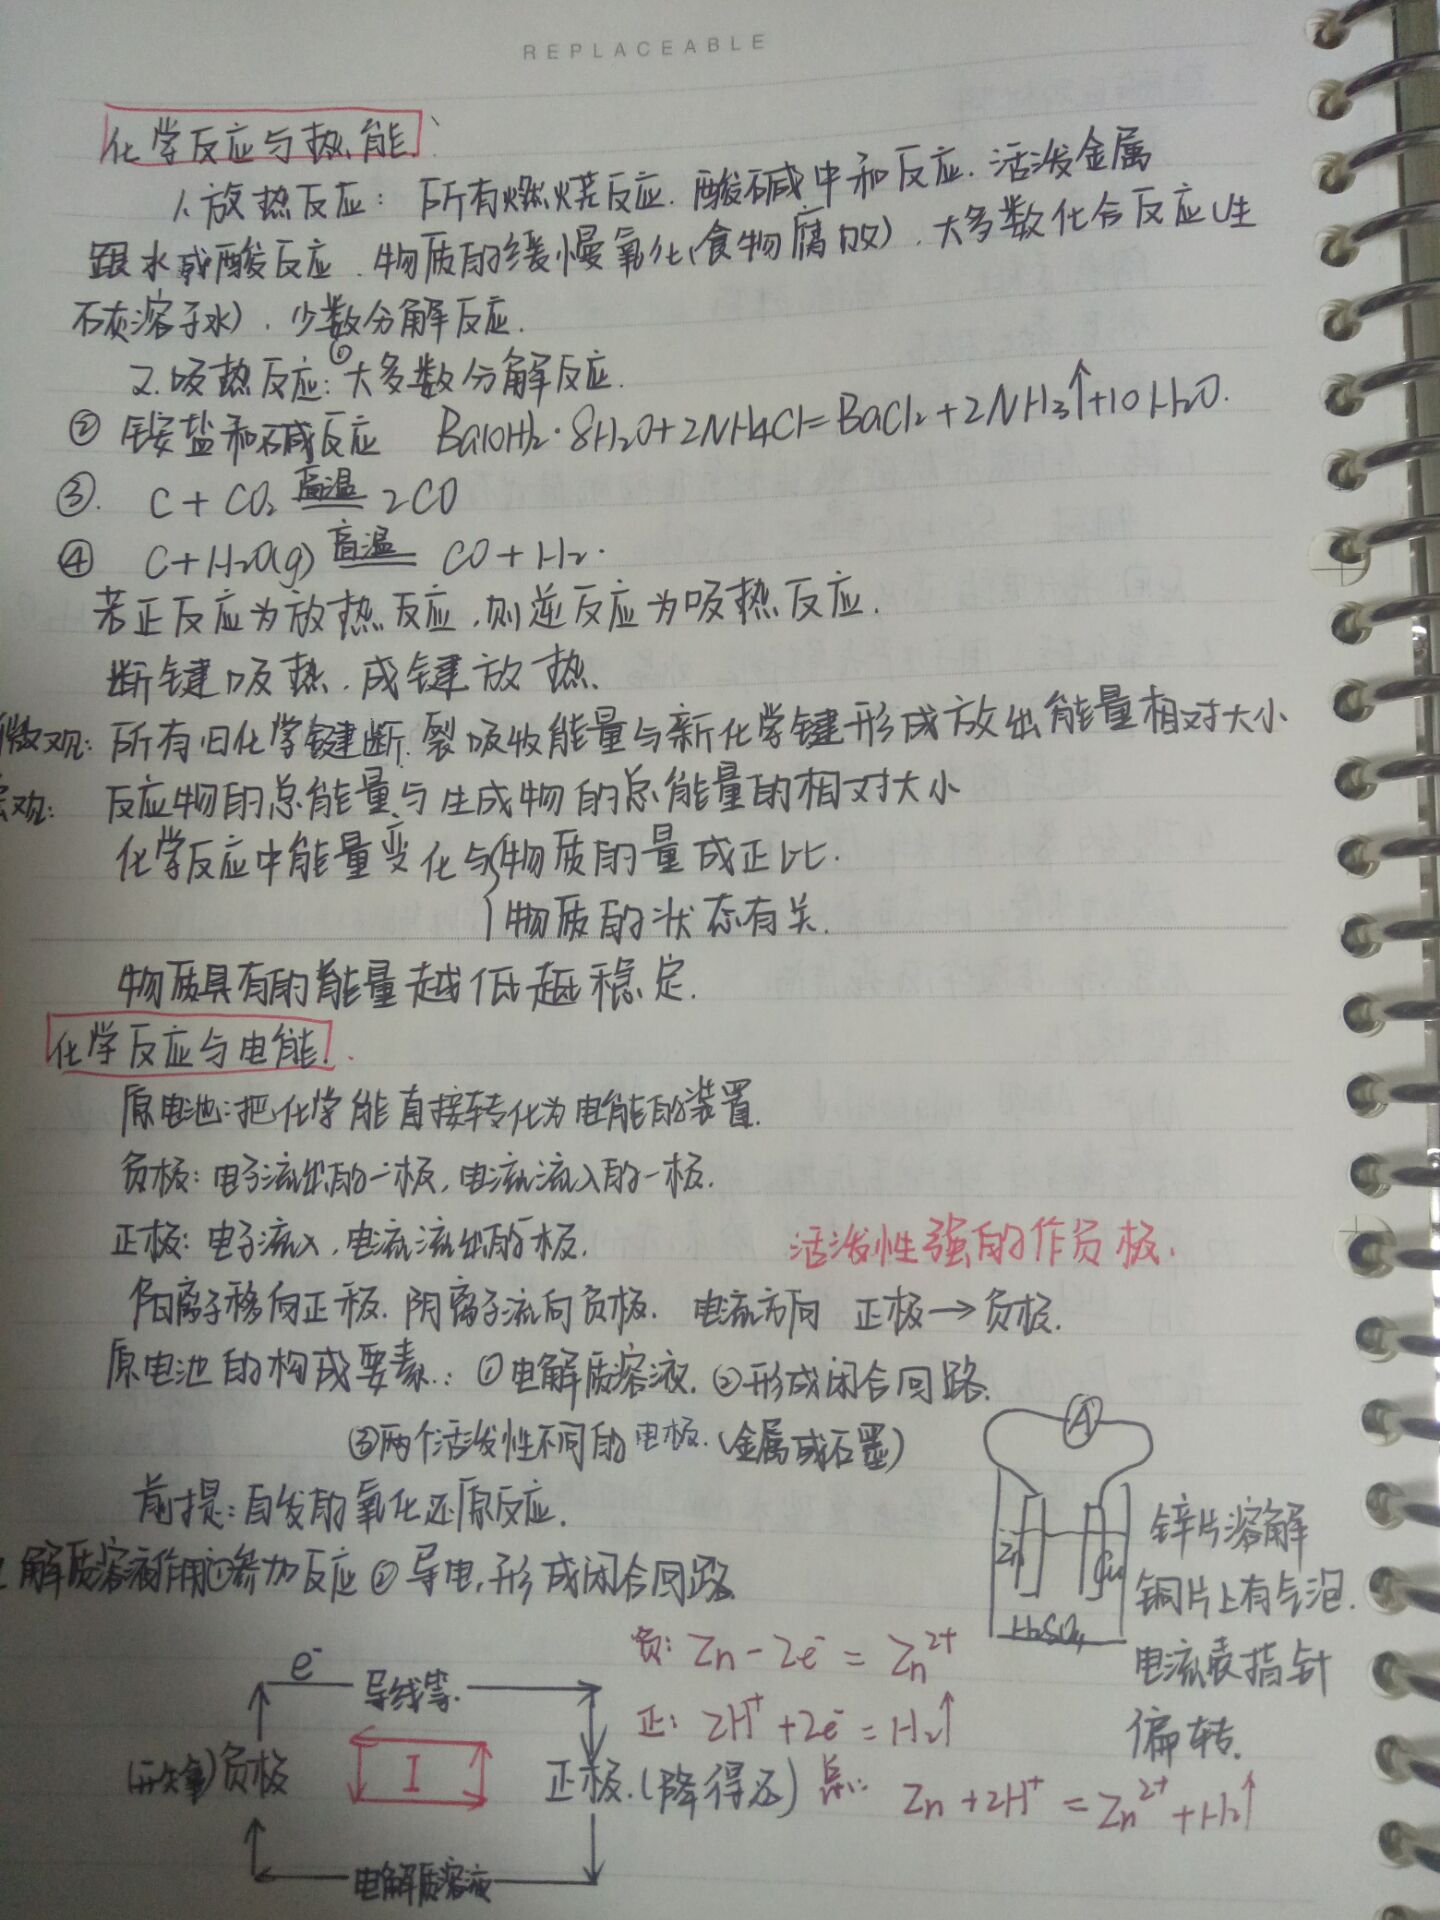 REPLACEABLE
化学反应与热能
1.放热反应：所有燃烧反应.酸碱中和反应.活泼金属
跟水或酸反应.物质的缓慢氧化(食物腐败).大多数化合反应(生
石灰溶于水).少数分解反应.
2.吸热反应:①大多数分解反应.
② 铵盐和碱反应 Ba(OH)2·8H2O+2NH4Cl=BaCl2+2NH3↑+10H2O.
③. C+CO2 高温 2CO
④ C+H2O(g) 高温 CO+H2.
若正反应为放热反应,则逆反应为吸热反应.
断键吸热.成键放热.
微观:所有旧化学键断裂吸收能量与新化学键形成放出能量相对大小
观:反应物的总能量与生成物的总能量的相对大小
化学反应中能量变化与{物质的量成正比.
物质的状态有关.
物质具有的能量越低越稳定.
化学反应与电能.
原电池:把化学能直接转化为电能的装置.
负极:电子流出的一极,电流流入的一极.
正极:电子流入,电流流出的一极. 活泼性强的作负极.
阳离子移向正极.阴离子流向负极. 电流方向 正极→负极.
原电池的构成要素:①电解质溶液.②形成闭合回路.
③两个活泼性不同的电极.(金属或石墨)
前提:自发的氧化还原反应.
解质溶液作用①参加反应②导电,形成闭合回路
A
Zn
Cu
H2SO4
锌片溶解
铜片上有气泡.
电流表指针
偏转.
负: Zn-2e⁻=Zn²⁺
正: 2H⁺+2e⁻=H2↑
总: Zn+2H⁺=Zn²⁺+H2↑
e⁻ 导线等.
负极 I 正极.(降得还)
电解质溶液